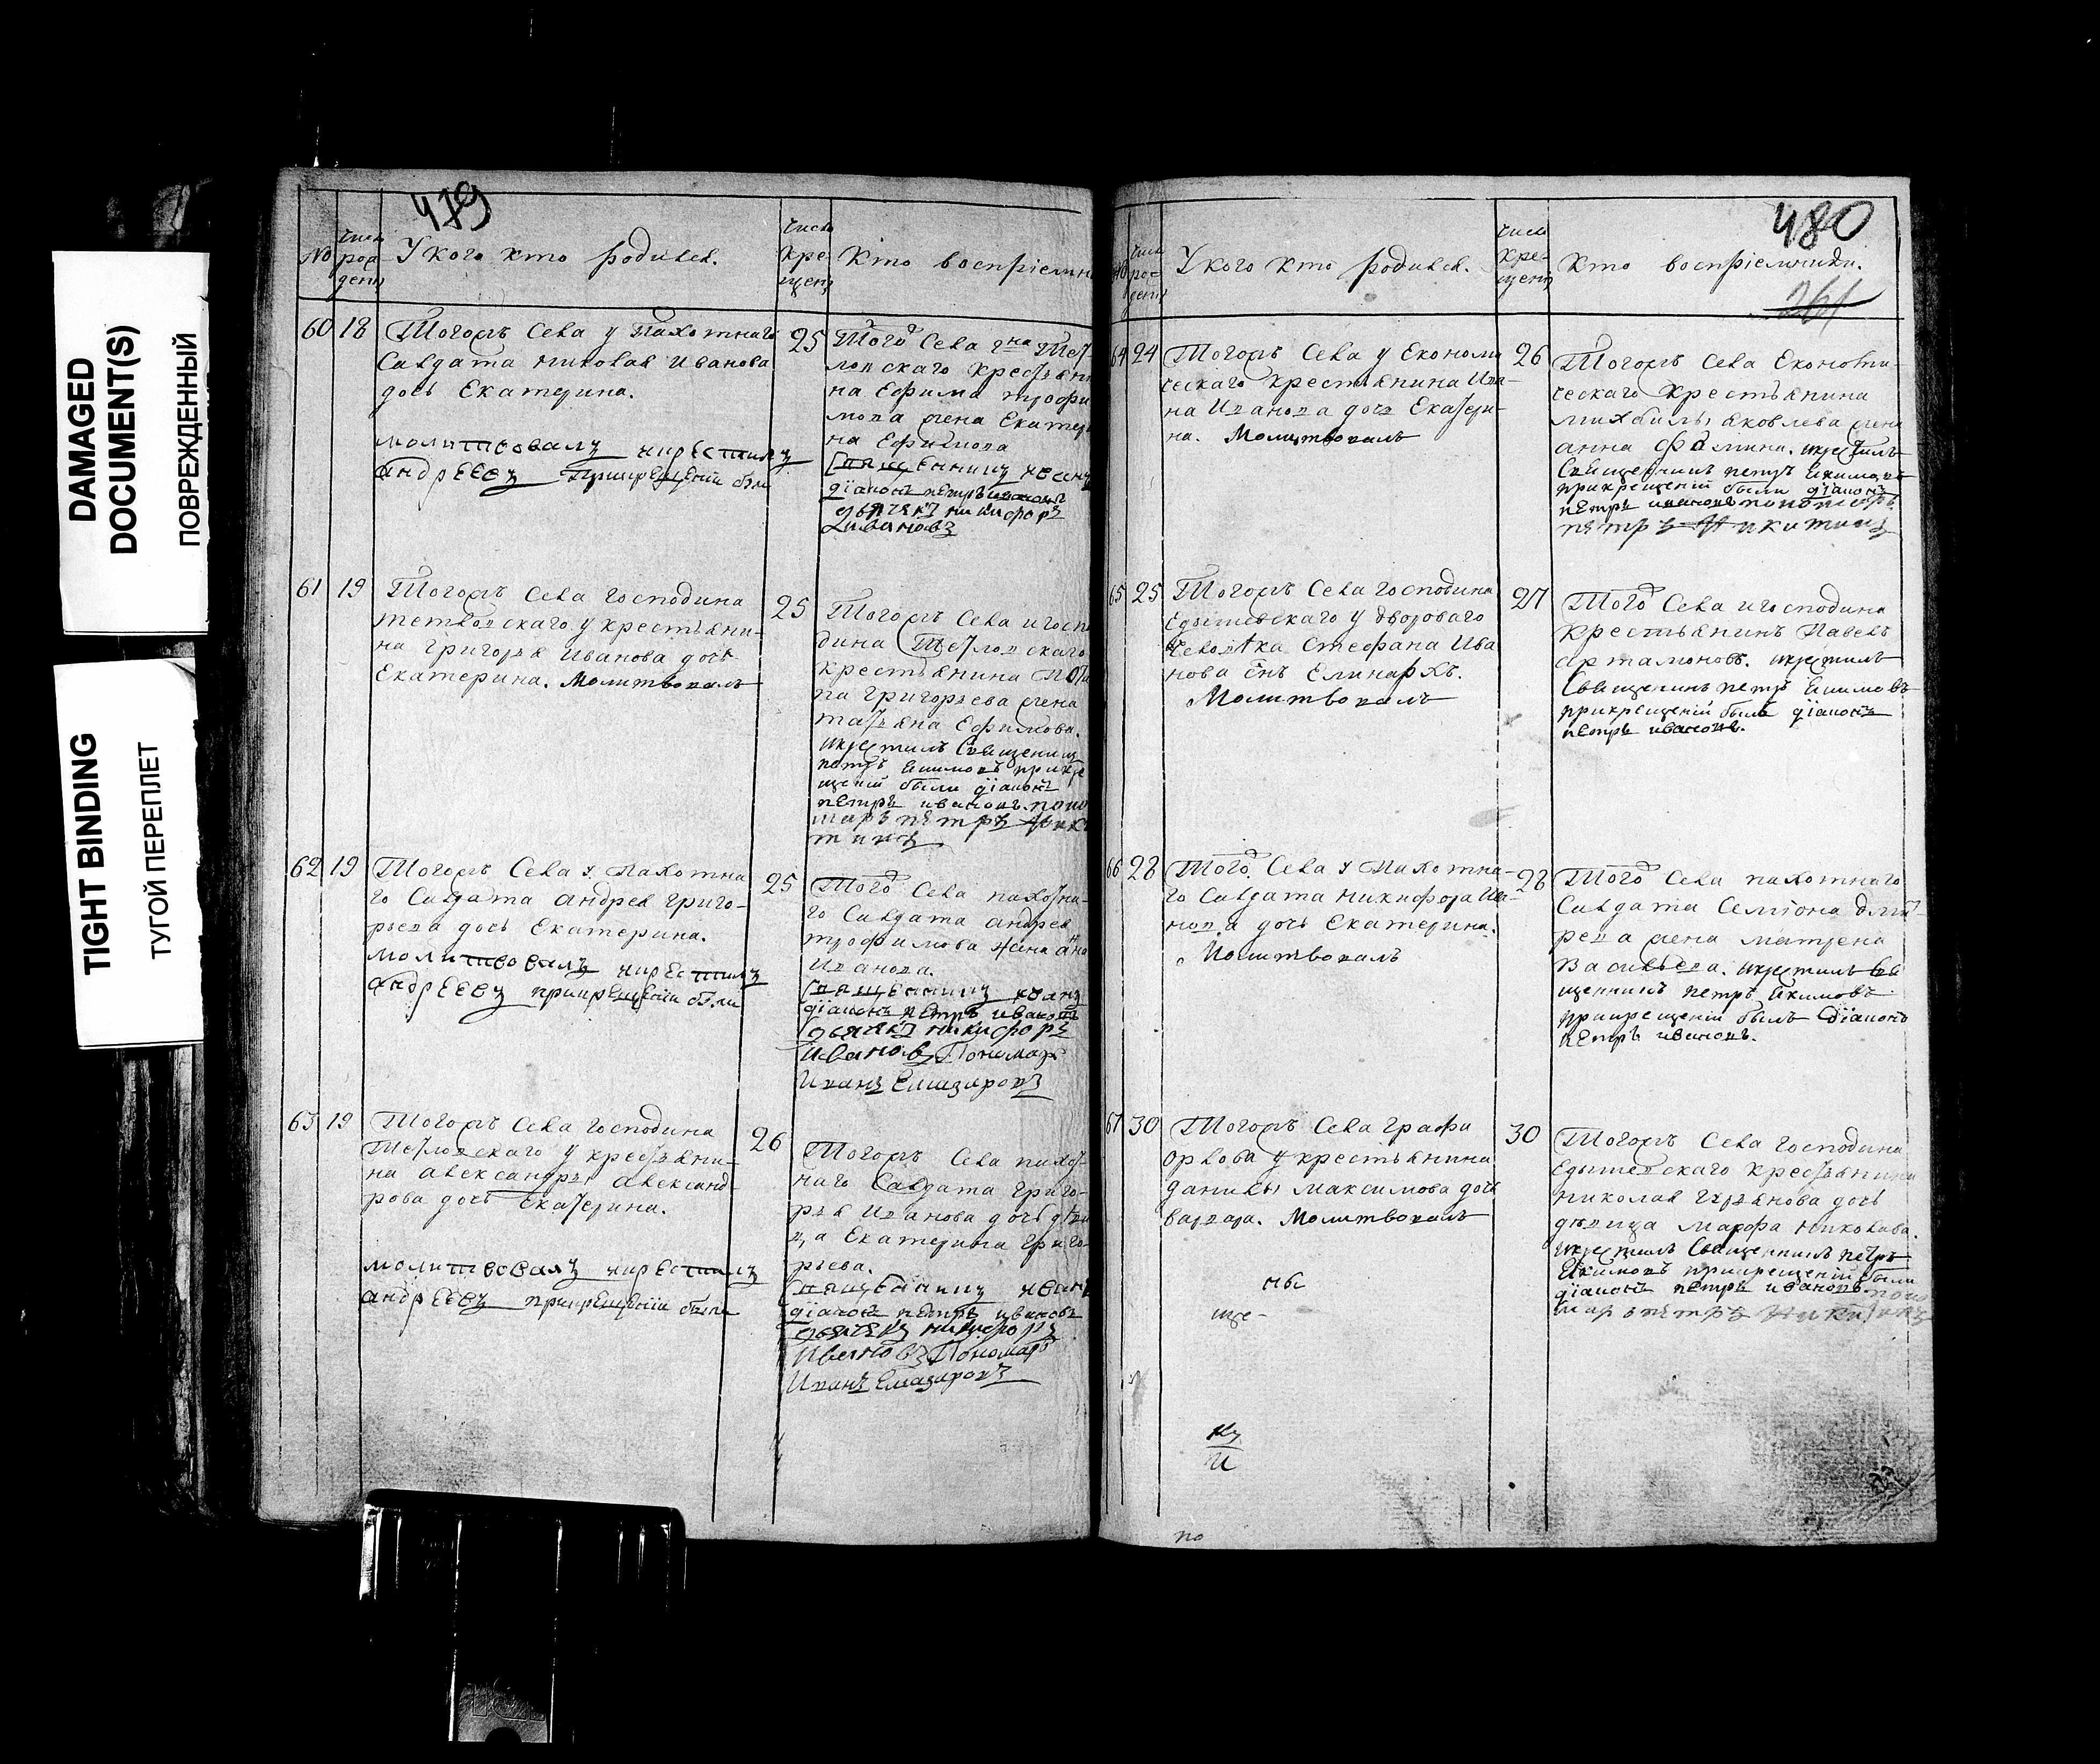 DAMAGED
DOCUMENT(S)
ПОВРЕЖДЕННЫЙ
TIGHT BINDING
ТУГОЙ ПЕРЕПЛЕТ
479
№
Число
рож
ден
У кого кто родился.
Число
кре-
щен
Кто воспрiемни
60 18
Тогожъ Села у Пахотнаго
Салдата Николая Иванова
дочь Екатерина.
молитвовалъ и крестилъ
андрЕевъ При крещенiи были
25
Того Села гна
лонскаго крестьяни
на Ефима трофи
мова жена Екатери
на Ефимова
священникъ иванъ
дiаконъ петръ ивановъ
дьячекъ никифоръ
Ивановъ
61 19
Тогожъ Села Господина
у крестьяни-
на Григорья Иванова дочь
Екатерина. Молитвовалъ
25
Тогожъ Села и госпо
дина
крестьянина
па Григорьева жена
татьяна Ефимова.
и крестилъ Священникъ
петръ Екимовъ при кре
щенiи были дiаконъ
петръ ивановъ. поно
марь петръ Ники
тинъ
62 19
Тогожъ Села у Пахотна
го Салдата Андрея Григо-
рьева дочь Екатерина.
молитвовалъ и крестилъ
андрЕевъ при крещенiи были
25
Того Села пахотна-
го Салдата андрея
трофимова жена анна
Иванова.
священникъ иванъ
дiаконъ петръ ивановъ
дьячекъ никифоръ
Ивановъ Пономарь
Иванъ Елизаровъ
63 19
Тогожъ Села Господина
у крестьяни-
на александры александ
рова дочь Екатерина.
молитвовалъ и крестилъ
андрЕевъ при крещенiи были
26
Тогожъ Села пахот-
наго Салдата Григо-
рья Иванова дочь деви
ца Екатерина Григо-
рьева.
священникъ иванъ
дiаконъ петръ ивановъ
дьячекъ никифоръ
Ивановъ Пономарь
Иванъ Елизаровъ
480
261
№
Число
рож-
ден
У кого кто родился.
Число
кре-
щен
Кто воспрiемники.
64 24
Тогожъ Села у Економи
ческаго крестьянина Ива-
на Иванова дочь Екатери-
на. Молитвовалъ
26
Тогожъ Села Економи-
ческаго крестьянина
михайлы яковлева жена
анна Фомина. и крестилъ
Священникъ петръ Екимовъ
при крещенiи были дiаконъ
петръ ивановъ пономарь
петръ Никитинъ
65 25
Тогожъ Села Господина
у двороваго
человека Стефана Ива
нова снъ Елинархъ.
Молитвовалъ
27
Того Села и господина
крестьянинъ Павелъ
артамоновъ. и крестилъ
Священникъ петръ Екимовъ
при крещенiи былъ дiаконъ
петръ ивановъ.
66 28
Того Села у Пахотна-
го Салдата Никифора Ива-
нова дочь Екатерина.
Молитвовалъ
28
Того Села пахотнаго
Салдата Семiона дмит-
рева жена матрена
Васильева. и крестилъ Свя
щенникъ петръ Екимовъ.
при крещенiи былъ дiаконъ
петръ ивановъ.
67 30
Тогожъ Села графа
Орлова у крестьянина
данилы Максимова дочь
варвара. Молитвовалъ
30
Тогожъ Села Господина
крестьянина
николая дочь
девица марфа николаева.
и крестилъ Священникъ петръ
Екимовъ при крещенiи были
дiаконъ петръ ивановъ. поно
марь петръ Никитинъ
ны
ще-
по